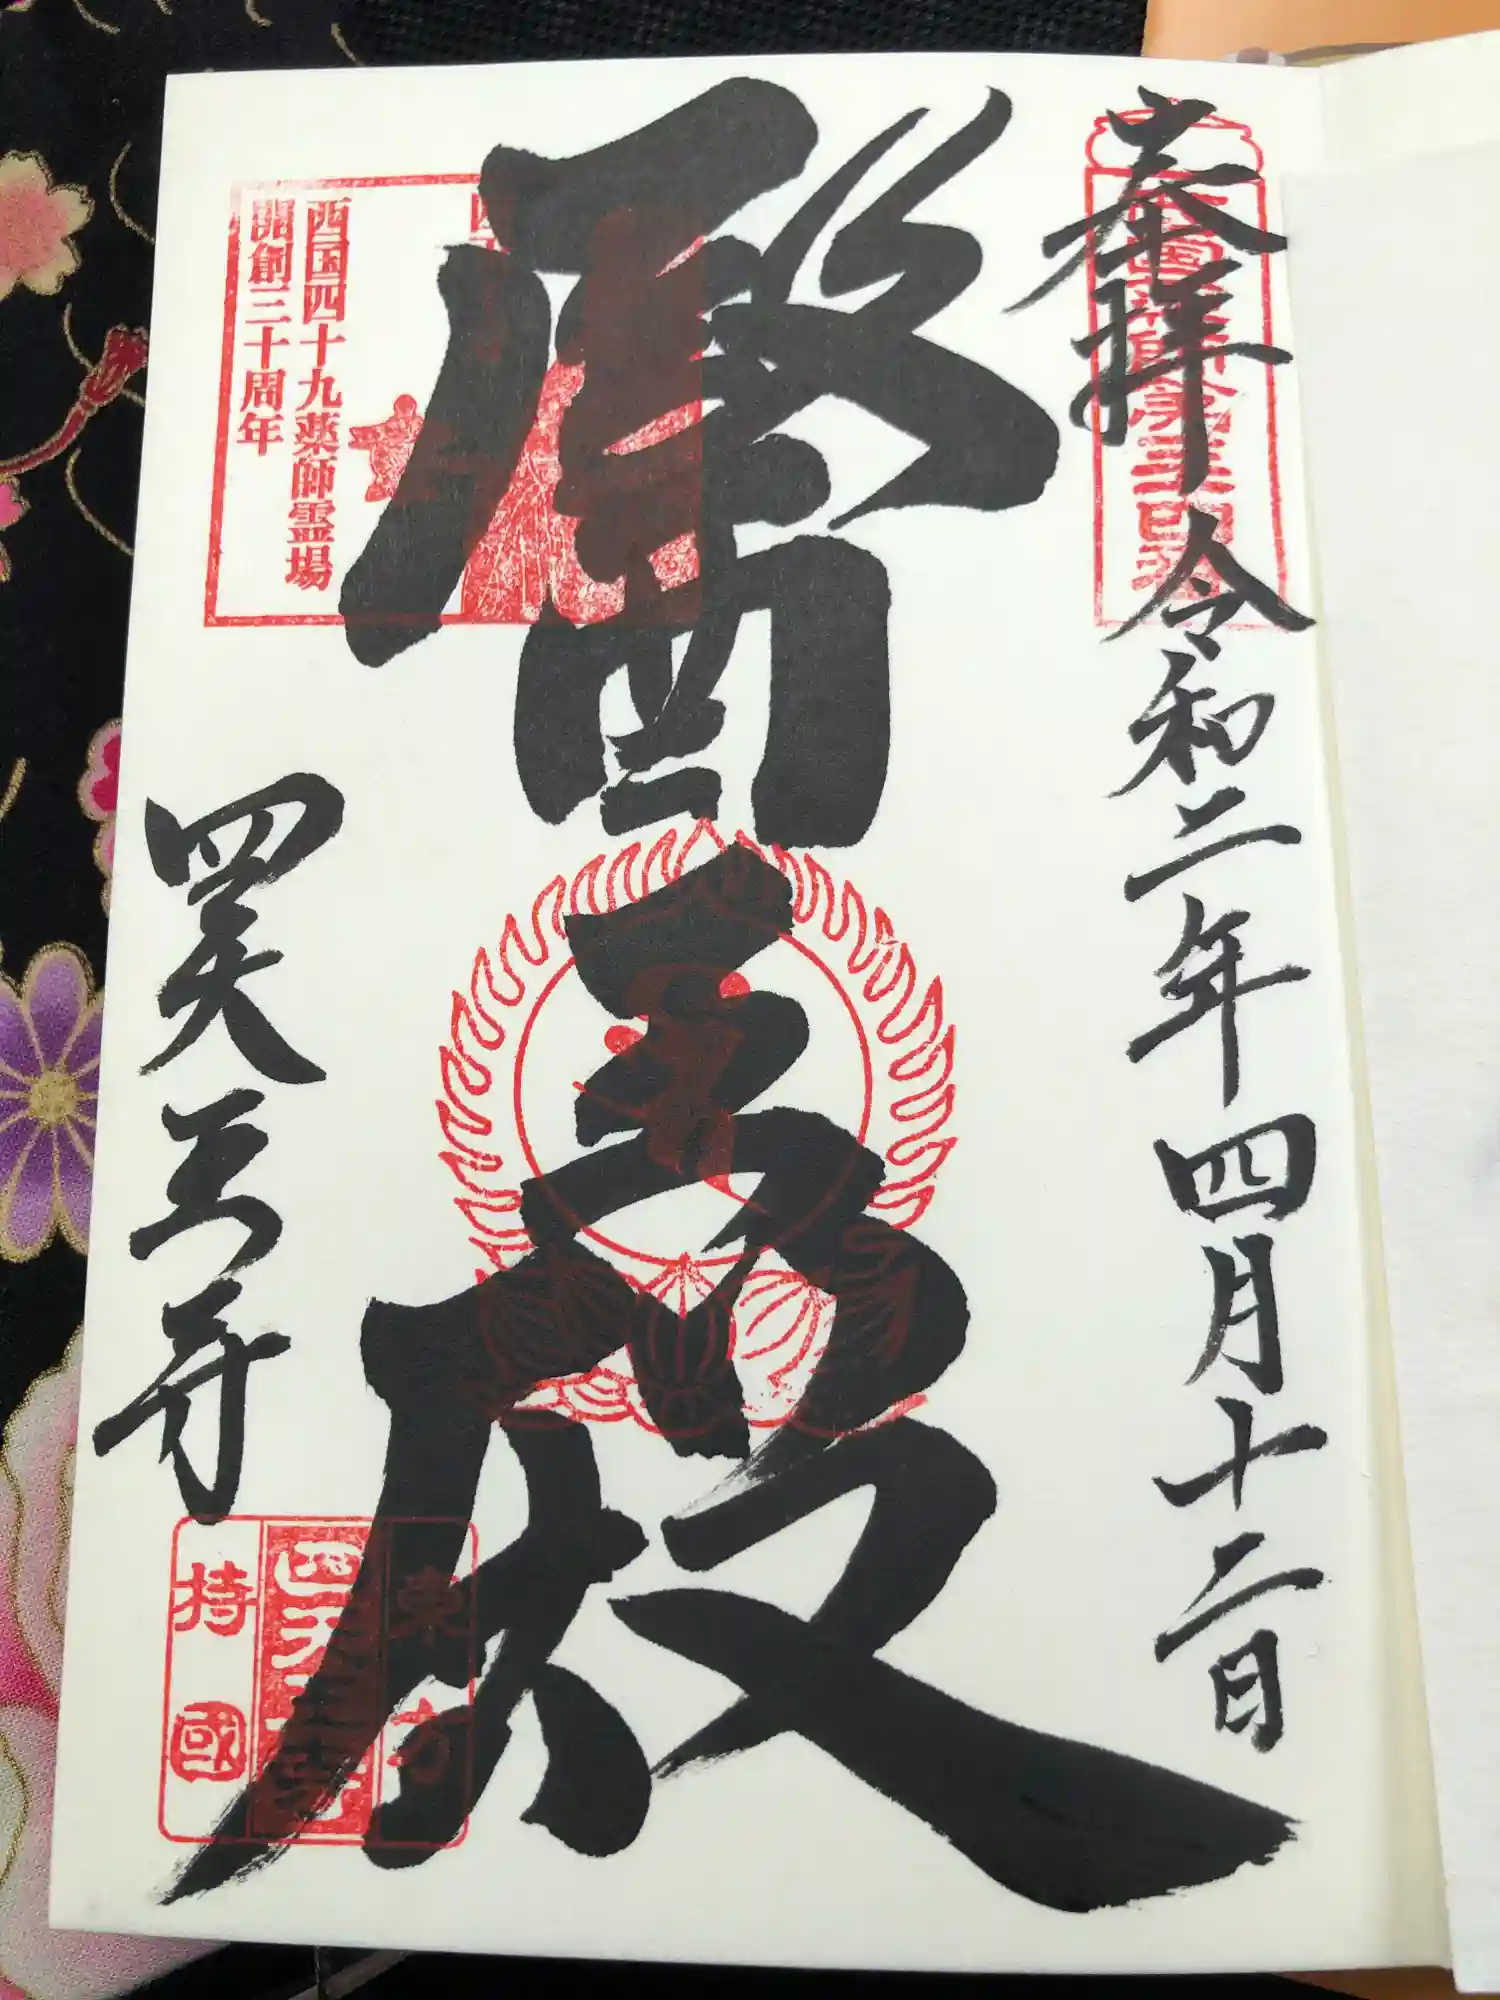 奉拝
令和二年四月十二日
醫王殿
西国四十九薬師霊場
開創三十周年
四天王寺
東方
四天王寺
持國